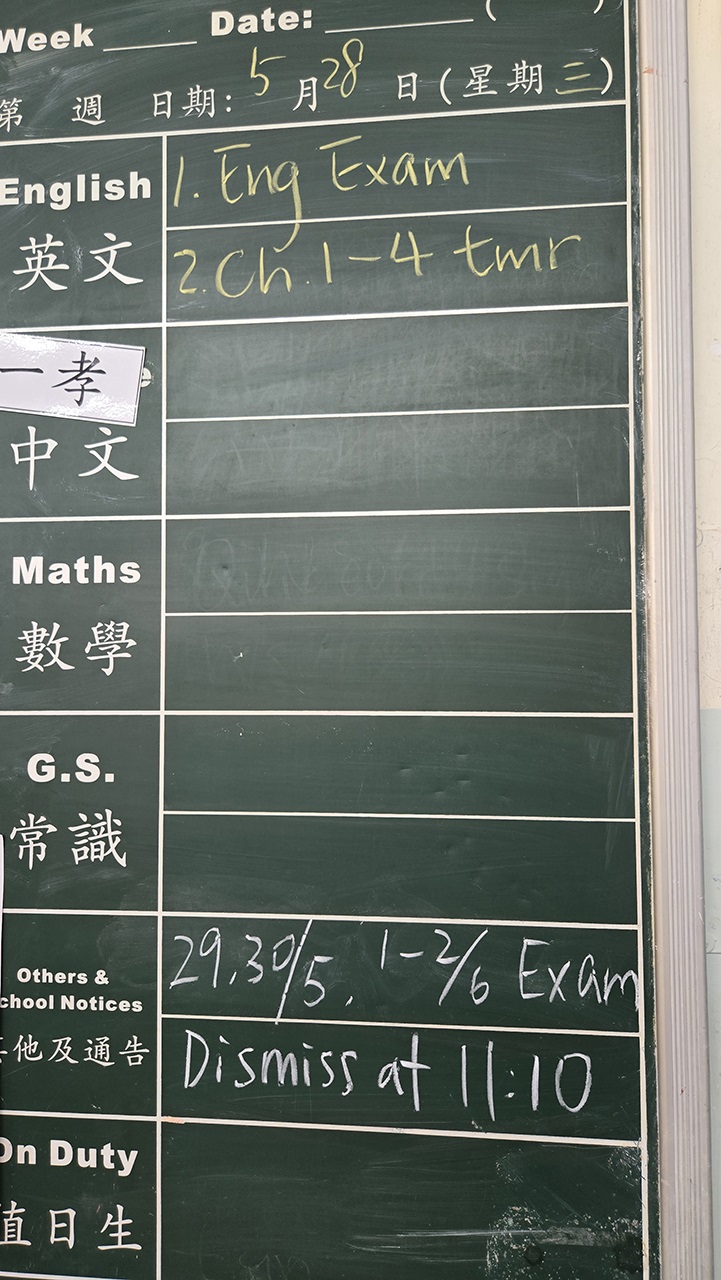 Week ____ Date: ________ ( )
第 週 日期: 5 月 28 日 (星期三)
English
1. Eng Exam
英文
2. Ch. 1-4 tmr
一孝
中文
Maths
數學
G.S.
常識
29, 30/5, 1-2/6 Exam
Others &
chool Notices
他及通告
Dismiss at 11:10
On Duty
值日生